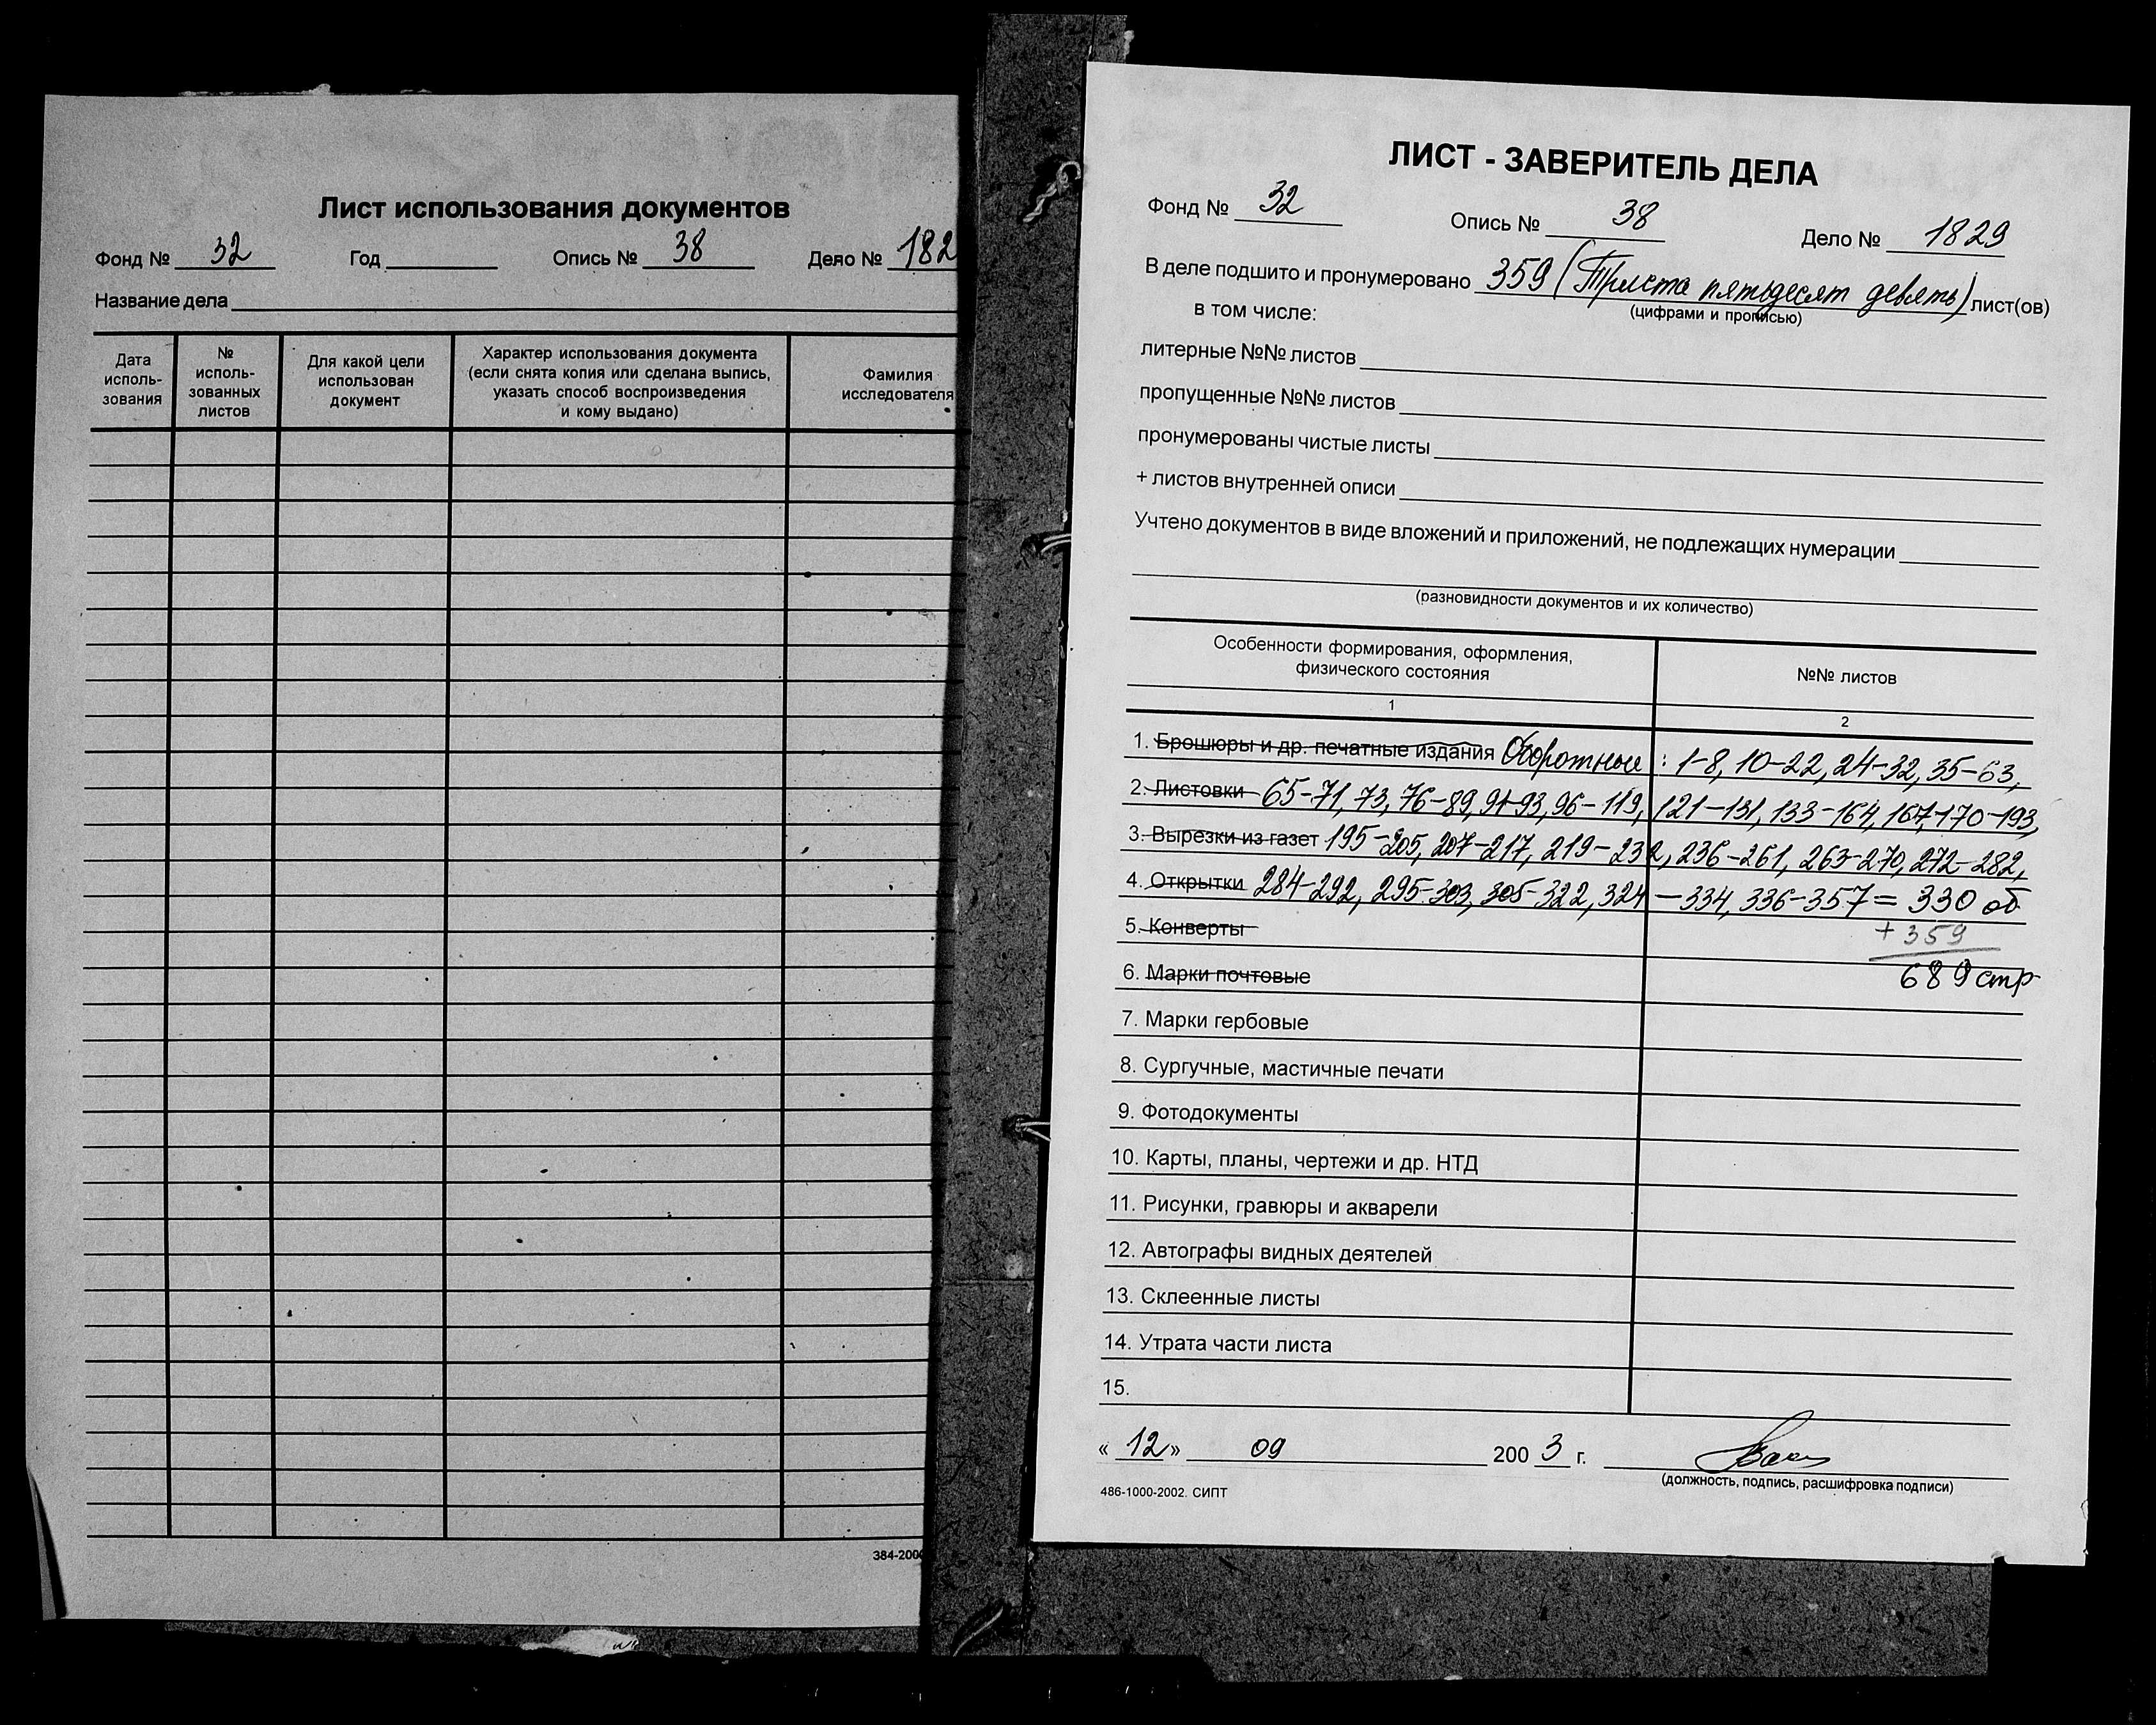 Лист использования документов
Фонд № 32 Год Опись № 38 Дело № 182
Название дела
Дата исполь-зования
№ исполь-зованных листов
Для какой цели использован документ
Характер использования документа (если снята копия или сделана выпись, указать способ воспроизведения и кому выдано)
Фамилия исследователя
384-200
ЛИСТ - ЗАВЕРИТЕЛЬ ДЕЛА
Фонд № 32 Опись № 38 Дело № 1829
В деле подшито и пронумеровано 359 (Триста пятьдесят девять) лист(ов)
в том числе: (цифрами и прописью)
литерные №№ листов
пропущенные №№ листов
пронумерованы чистые листы
+ листов внутренней описи
Учтено документов в виде вложений и приложений, не подлежащих нумерации
(разновидности документов и их количество)
Особенности формирования, оформления, физического состояния
№№ листов
1 2
1. Брошюры и др. печатные издания Оборотные : 1-8, 10-22, 24-32, 35-63,
2. Листовки 65-71, 73, 76-89, 91-93, 96-119, 121-131, 133-164, 167, 170-193,
3. Вырезки из газет 195-205, 207-217, 219-232, 236-261, 263-270, 272-282,
4. Открытки 284-292, 295-303, 305-322, 324-334, 336-357 = 330 об
5. Конверты + 359
6. Марки почтовые 689 стр
7. Марки гербовые
8. Сургучные, мастичные печати
9. Фотодокументы
10. Карты, планы, чертежи и др. НТД
11. Рисунки, гравюры и акварели
12. Автографы видных деятелей
13. Склеенные листы
14. Утрата части листа
15.
« 12 » 09 200 3 г.
(должность, подпись, расшифровка подписи)
486-1000-2002. СИПТ